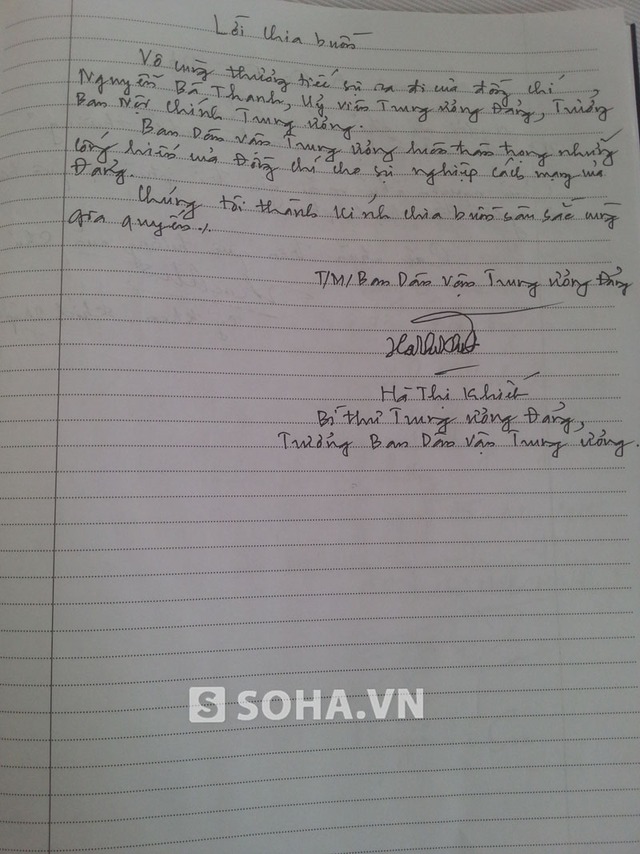 Lời chia buồn
Vô cùng thương tiếc sự ra đi của đồng chí
Nguyễn Bá Thanh, Uỷ viên Trung ương Đảng, Trưởng
Ban Nội chính Trung ương.
Ban Dân vận Trung ương luôn trân trọng những
cống hiến của Đồng chí cho sự nghiệp cách mạng của
Đảng.
Chúng tôi thành kính chia buồn sâu sắc cùng
gia quyến ./.
T/M/ Ban Dân vận Trung ương Đảng
Hà Thị Khiết
Bí thư Trung ương Đảng,
Trưởng Ban Dân vận Trung ương.
S SOHA.VN